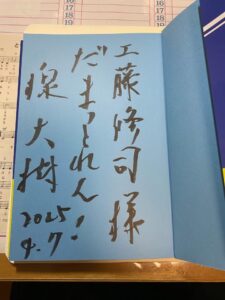 工藤修司様
だまっとれん!
線大樹
2025
4.7